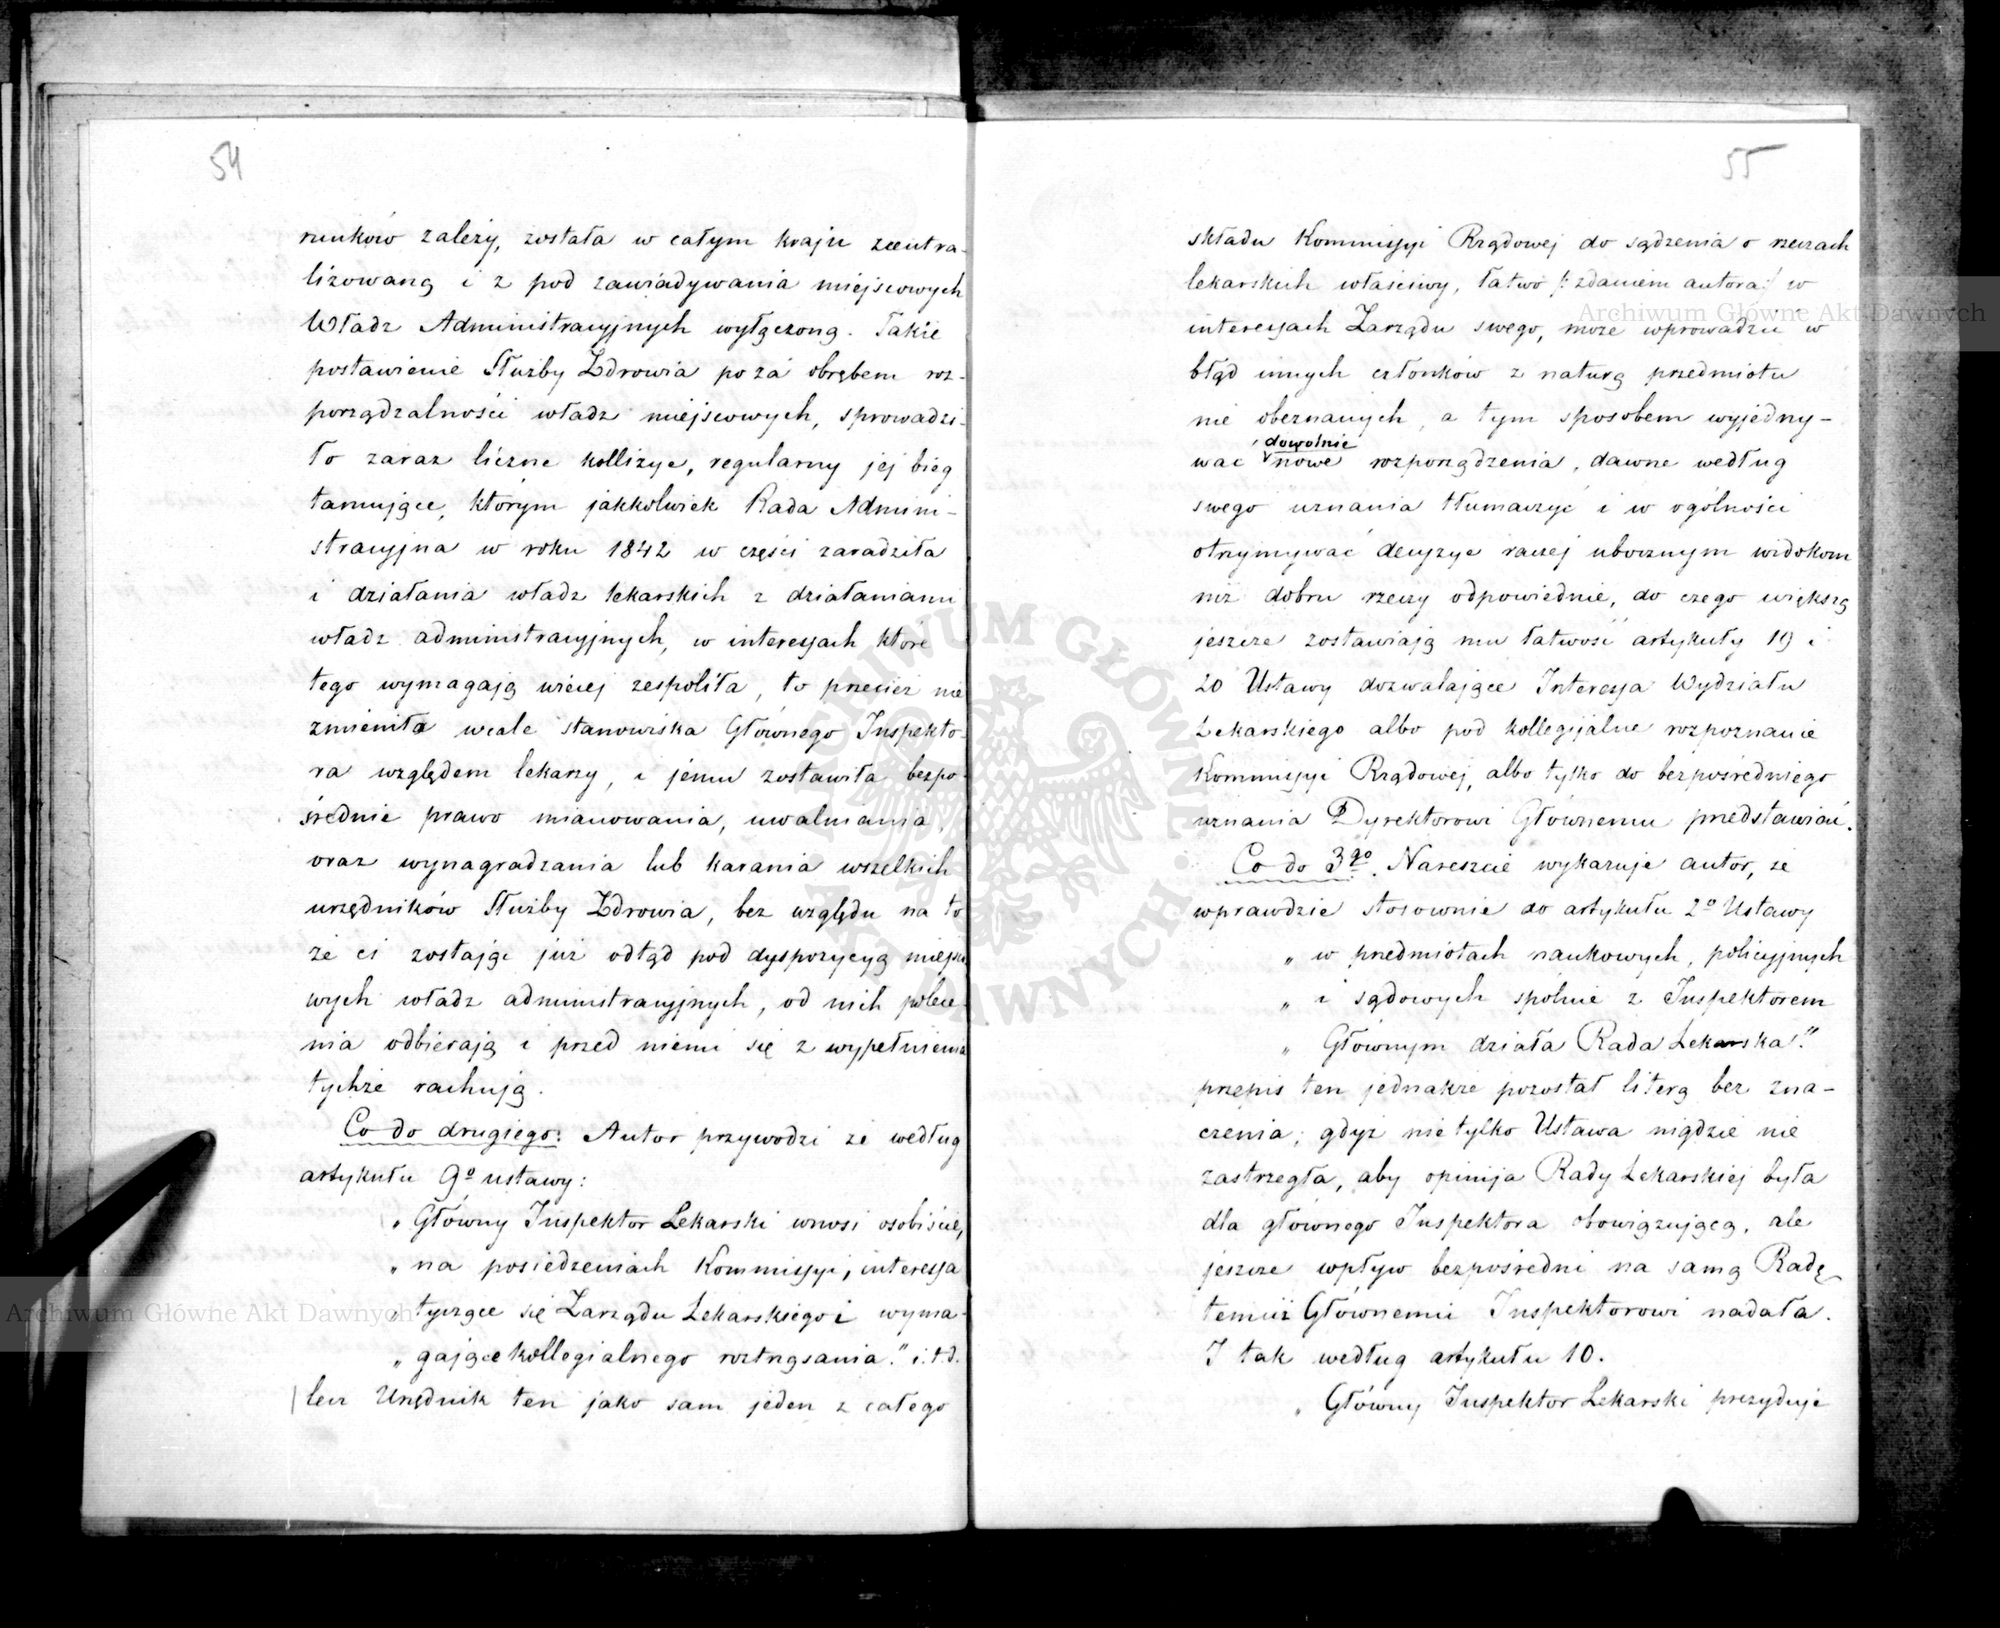 54
runków zależy, została w całym kraju zcentra-
lizowaną i z pod zawiadywania miejscowych
Władz Administracyjnych wyłączoną. Takie
postawienie Służby Zdrowia poza obrębem roz-
porządzalności władz miejscowych, sprowadzi-
ło zaraz liczne kollizye, regularny jej bieg
tamujące, którym jakkolwiek Rada Admini-
stracyjna w roku 1842 w części zaradziła
i działania władz lekarskich z działaniami
władz administracyjnych, w interessach które
tego wymagają więcej zespoliła, to przecież nie
zmieniła wcale stanowiska Głównego Inspekto-
ra względem lekarzy, i jemu zostawiła bezpo-
średnie prawo mianowania, uwalniania,
oraz wynagradzania lub karania wszelkich
urzędników Służby Zdrowia, bez względu na to
że ci zostając już odtąd pod dyspozycyą miejsco
wych władz administracyjnych, od nich polece-
nia odbierają i przed niemi się z wypełnienia
tychże rachują.
Co do drugiego: Autor przywodzi że według
artykułu 9º ustawy:
„Główny Inspektor Lekarski wnosi osobiście,
„na posiedzeniach Kommissyi, interessa
„tyczące się Zarządu Lekarskiego i wyma-
„gające kollegialnego roztrząsania." i.t.d.
lecz Urzędnik ten jako sam jeden z całego
55
składu Kommissyi Rządowej do sądzenia o rzeczach
lekarskich właściwy, łatwo /: zdaniem autora :/ w
interessach Zarządu swego, może wprowadzić w
błąd innych członków z naturą przedmiotu
nie obeznanych, a tym sposobem wyjedny-
dowolnie
wać nowe rozporządzenia, dawne według
swego uznania tłumaczyć i w ogólności
otrzymywać decyzye raczej ubocznym widokom
niż dobru rzeczy odpowiednie, do czego większą
jeszcze zostawiają mu łatwość artykuły 19 i
20 Ustawy dozwalające Interessa Wydziału
Lekarskiego albo pod kollegijalne rozpoznanie
Kommissyi Rządowej, albo tylko do bezpośredniego
uznania Dyrektorowi Głównemu przedstawiać.
Co do 3go. Nareszcie wykazuje autor, że
wprawdzie stosownie do artykułu 2º Ustawy
„w przedmiotach naukowych, policyjnych
„i sądowych spólnie z Inspektorem
„Głównym działa Rada Lekarska."
przepis ten jednakże pozostał literą bez zna-
czenia; gdyż nietylko Ustawa nigdzie nie
zastrzegła, aby opinija Rady Lekarskiej była
dla głównego Inspektora obowiązującą, ale
jeszcze wpływ bezpośredni na samą Radę
temuż Głównemu Inspektorowi nadała.
I tak według artykułu 10.
„Główny Inspektor Lekarski prezyduje
Archiwum Główne Akt Dawnych
Archiwum Główne Akt Dawnych
ARCHIWUM GŁÓWNE AKT DAWNYCH